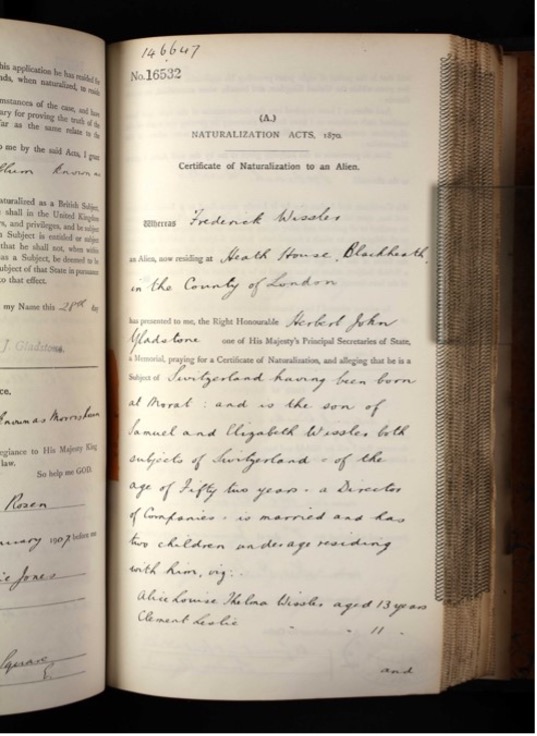 his application he has resided
nds, when naturalized, to reside
mstances of the case, and have
ary for proving the truth of the
far as the same relate to the
o me by the said Acts, I grant
known as
aturalized as a British Subject,
shall in the United Kingdom
s, and privileges, and be subject
Subject is entitled or subject
that he shall not, when within
as a Subject, be deemed to be
ubject of that State in pursuance
to that effect.
my Name this 28th day
J. Gladstone.
ce.
known as Morris
egiance to His Majesty King
law.
So help me GOD.
Rosen
nuary 1907 before me
ie Jones
Square
E.
146647
No. 16532
(A.)
NATURALIZATION ACTS, 1870.
Certificate of Naturalization to an Alien.
Whereas Frederick Wissler
an Alien, now residing at Heath House, Blackheath,
in the County of London
has presented to me, the Right Honourable Herbert John
Gladstone one of His Majesty's Principal Secretaries of State,
a Memorial, praying for a Certificate of Naturalization, and alleging that he is a
Subject of Switzerland having been born
at Morat : and is the son of
Samuel and Elizabeth Wissler both
subjects of Switzerland - of the
age of Fifty two years - a Director
of Companies - is married and has
two children under age residing
with him, viz:-
Alice Louise Thelma Wissler aged 13 years
Clement Leslie " " 11 "
and